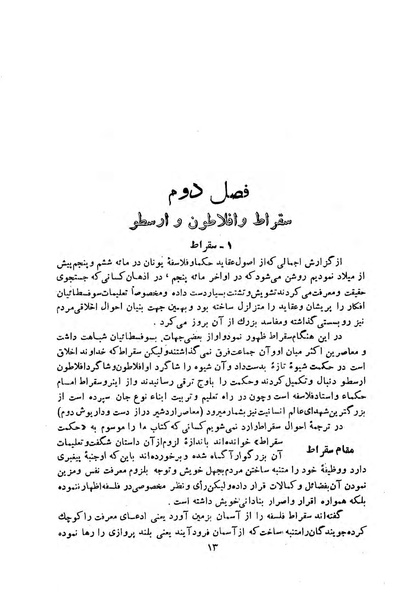 فصل دوم
سقراط و افلاطون و ارسطو
۱ - سقراط
از گزارش اجمالی که از اصول عقاید حکما و فلاسفهٔ یونان در مائه ششم و پنجم پیش
از میلاد نمودیم روشن می‌شود که در اواخر مائهٔ پنجم ، در اذهان کسانی که جستجوی
حقیقت و معرفت می‌کردند تشویش و تشتت بسیار دست داده و مخصوصاً تعلیمات سوفسطائیان
افکار را پریشان و عقاید را متزلزل ساخته بود و بهمین جهت بنیان احوال اخلاقی مردم
نیز رو بسستی گذاشته و مفاسد بزرگ از آن بروز می‌کرد .
در این هنگام سقراط ظهور نمود و او از بعضی جهات بسوفسطائیان شباهت داشت
و معاصرین اکثر میان او و آن جماعت فرق نمی‌گذاشتند ولیکن سقراط که خداوند اخلاق
است در حکمت شیوهٔ تازهٔ بدست داد و آن شیوه را شاگرد او افلاطون و شاگرد افلاطون
ارسطو دنبال و تکمیل کردند و حکمت را باوج ترقی رسانیدند و از اینرو سقراط امام
حکماء و استاد فلاسفه است و چون در راه تعلیم و تربیت ابناء نوع جان سپرده است از
بزرگترین شهدای عالم انسانیت نیز بشمار میرود (معاصر اردشیر دراز دست و داریوش دوم)
در ترجمهٔ احوال سقراط وارد نمی‌شویم کسانی که کتاب ما را موسوم به «حکمت
مقام سقراط
سقراط» خوانده‌اند باندازهٔ لزوم از آن داستان شگفت و تعلیمات
آن بزرگوار آگاه شده و بر خورده‌اند باین که او جنبهٔ پیغمبری
دارد و وظیفهٔ خود را متنبه ساختن مردم بجهل خویش و توجه بلزوم معرفت نفس و مزین
نمودن آن بفضائل و کمالات قرار داده ولیکن رأی و نظر مخصوصی در فلسفه اظهار ننموده
بلکه همواره اقرار و اصرار بنادانی خویش داشته است .
گفته‌اند سقراط فلسفه را از آسمان بزمین آورد یعنی ادعای معرفت را کوچک
کرده جویندگان را متنبه ساخت که از آسمان فرود آیند یعنی بلند پروازی را رها نموده
۱۳